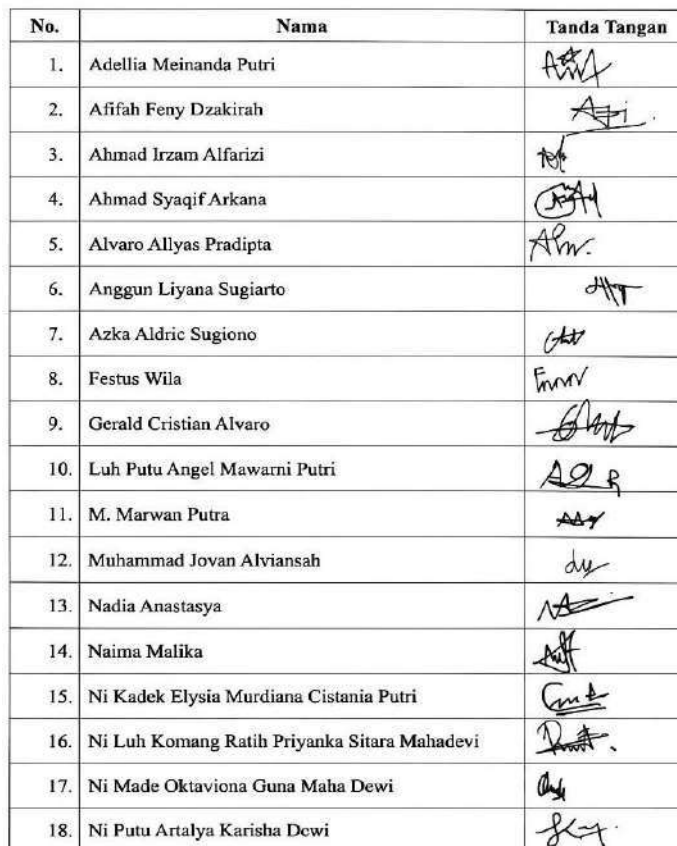 No. Nama Tanda Tangan
1. Adellia Meinanda Putri
2. Afifah Feny Dzakirah
3. Ahmad Irzam Alfarizi
4. Ahmad Syaqif Arkana
5. Alvaro Allyas Pradipta
6. Anggun Liyana Sugiarto
7. Azka Aldric Sugiono
8. Festus Wila
9. Gerald Cristian Alvaro
10. Luh Putu Angel Mawarni Putri
11. M. Marwan Putra
12. Muhammad Jovan Alviansah
13. Nadia Anastasya
14. Naima Malika
15. Ni Kadek Elysia Murdiana Cistania Putri
16. Ni Luh Komang Ratih Priyanka Sitara Mahadevi
17. Ni Made Oktaviona Guna Maha Dewi
18. Ni Putu Artalya Karisha Dewi